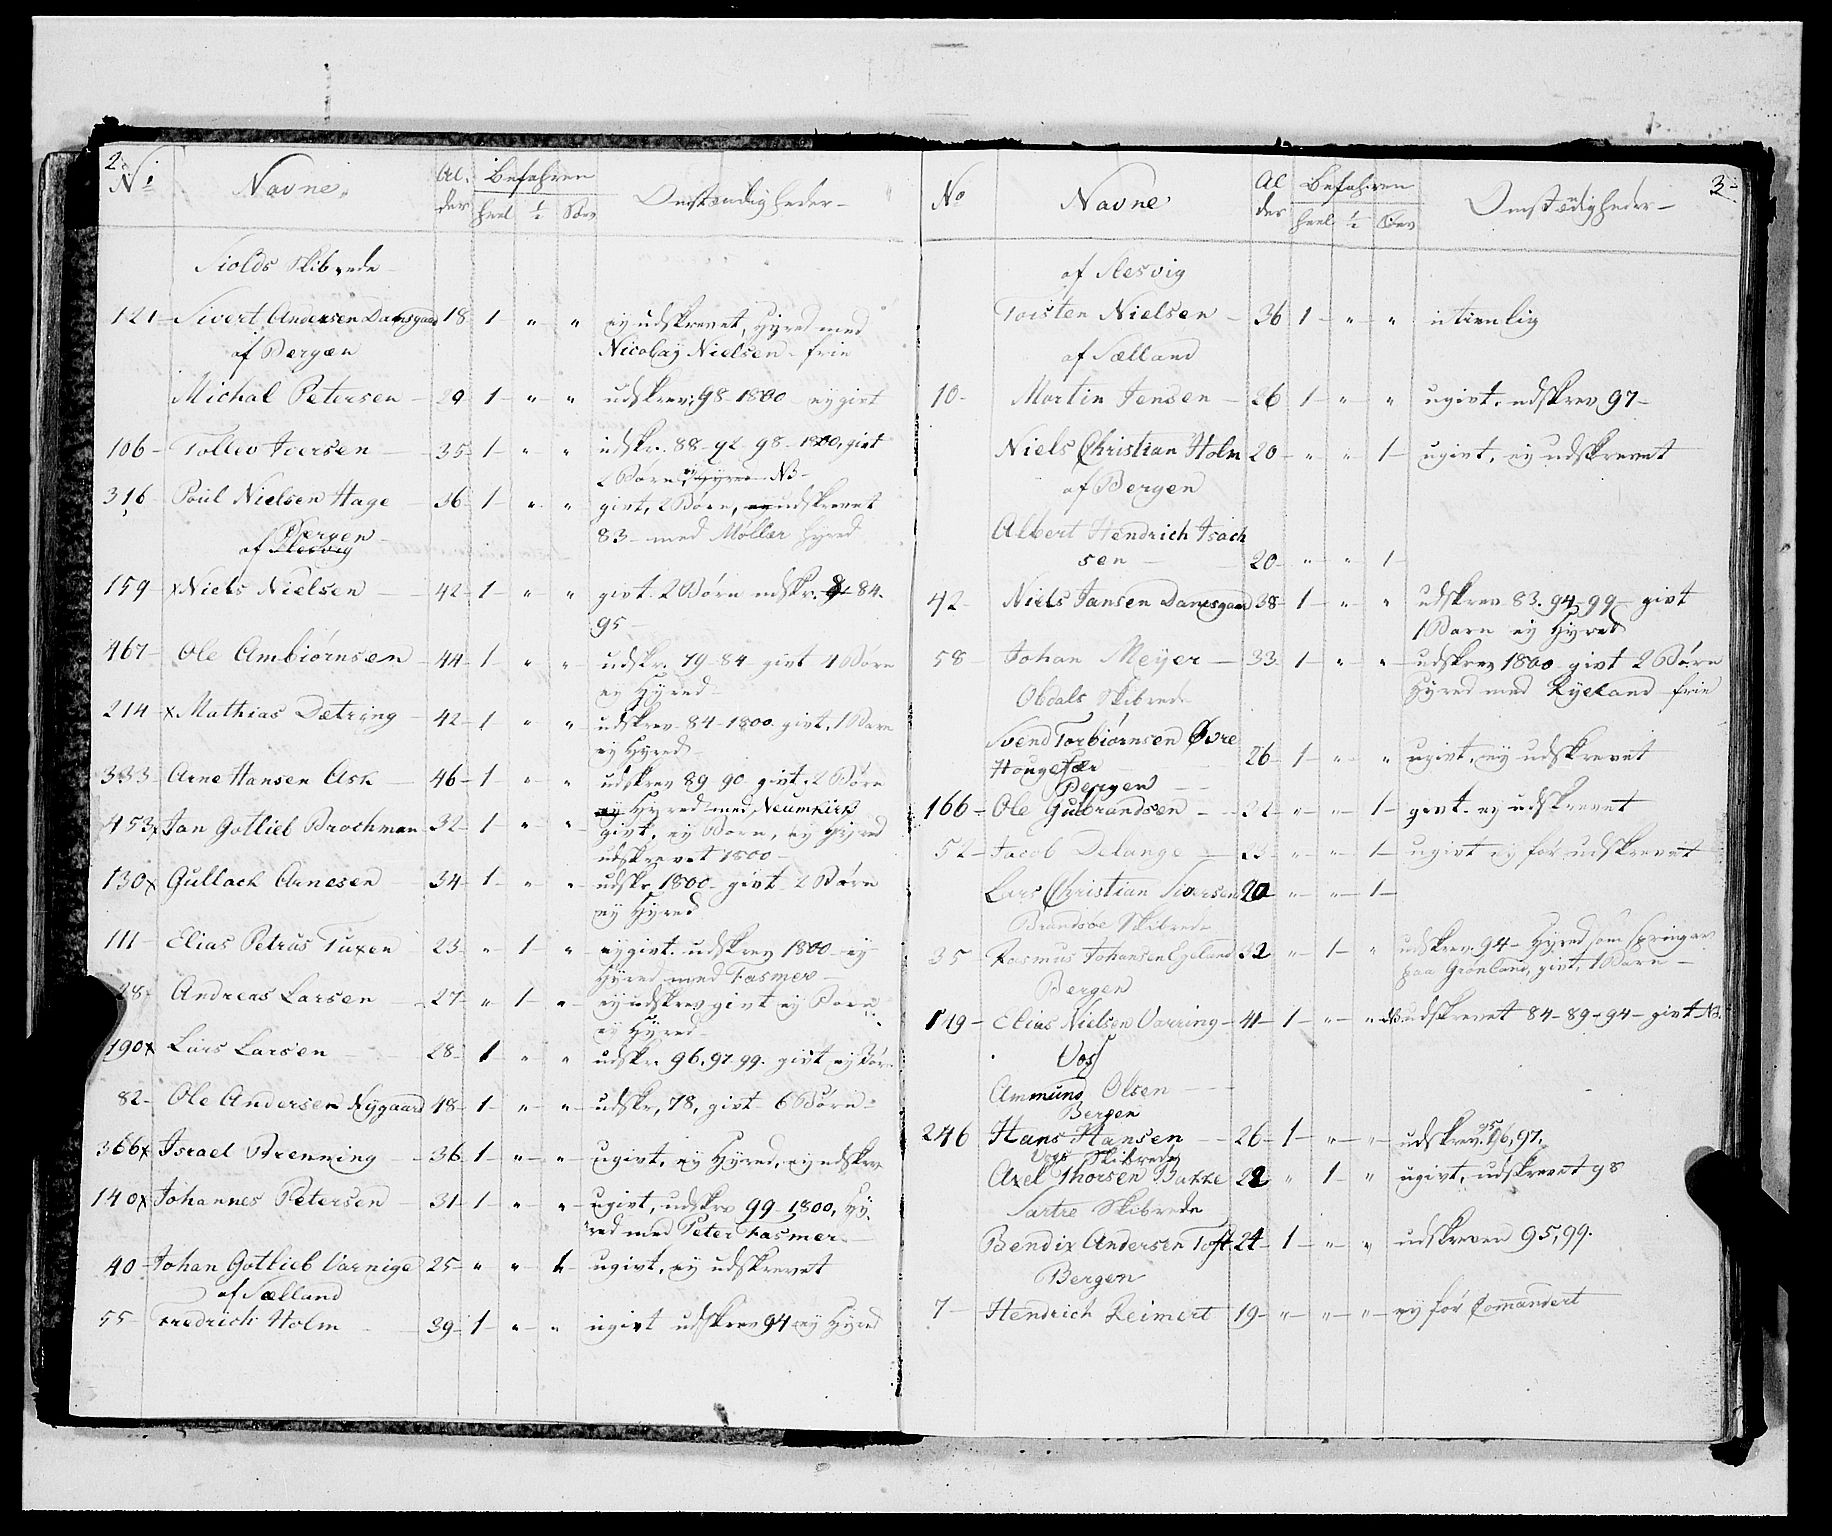 2.
No Navne. Al- der Befahren heel ½ Søev Omstændigheder
Siolds Skibrede
121 Sivert Andersen Damsgaard 18 1 " " ey udskrevet, Hyred med
Nicolaÿ Nielsen. frie
af Bergen
Michal Petersen 29 1 " " udskrev: 98-1800 ey givt
106 Tollev Iversen 35 1 " " udskr. 88-92-98-1800, givt
2 Børn NB
316 Poul Nielsen Hage 36 1 " " givt, 2 Børn, ey udskrevet
83- med Møller Hyred
Bergen
af Slesvig
159 x Niels Nielsen 42 1 " " givt. 2 Børn udskr. 84.
95
467 Ole Ambiørnsen 44 1 " " udskr. 79-84 givt 4 Børn
ey Hyred
214 x Mathias Dætring 42 1 " " udskrev 84-1800. givt, 1 Barn
ey Hyred
333 Arne Hansen Ask 46 1 " " udskrev 89 90 givt. 2 Børn
ey Hyred med Neumkirk
453 x Jan Gotlieb Brochman 32 1 " " givt, ey Børn, ey Hyred
udskrevet 1800
130 x Gullach Arnesen 34 1 " " udskr. 1800- givt 2 Børn
ey Hyred
111 Elias Petrus Tuxen 23 " 1 " ey givt. udskrev 1800 ey
Hyred med Fasmer
28 x Andreas Larsen 27 " 1 " ey udskrev givt ey Børn
ey Hyred
190 x Lars Larsen 28 1 " " udskr. 96, 97. 99. givt ey Bør
82 Ole Andersen Nygaard 48 1 " " udskr, 78, givt 6 Børn
366 x Israel Brenning 36 1 " " ugivt, ey Hyred, ey udskr
140 x Johannes Petersen 31 1 " " ugivt, udskrev 99-1800, Hy-
red med Peter Fasmer
40 Johan Gotlieb Varnige 25 " " 1 ugivt, ey udskrevet
af Sælland
55 Fredrich Holm 39 1 " " ugivt udskrev 94 ey Hyred
3
No Navne Al der Befahren heel ½ Søev Omstædigheder
af Slesvig
Torsten Nielsen 36 1 " " utienlig
af Sælland
10 Martin Jensen 26 1 " " ugivt. udskrev 97
Niels Christian Holm 20 " " 1 ugivt, ey udskrevet
af Bergen
Albert Hendrich Isach
sen 20 " " 1
42 Niels Jansen Damsgaard 38 1 " " udskrev 83. 94-99- givt
1 Barn ey Hyred
58 Johan Meyer 33 1 " " udskrev 1800 givt 2 Børn
Hyred med Ryeland frie
Obdals Skibrede
Svend Torbiørnsen Øvre
Hougesær 26 1 " " ugivt, ey udskrevet
Bergen
166 Ole Gulbrandsen 22 " " 1 givt. ey udskrevet
52 Jacob Delange 23 " " 1 ugivt ey før udskrevet
Lars Christian Siversen 20 " " 1
Brandsøe Skibrede
35 Rasmus Johansen Egeland 32 " 1 " udskrev. 94- Hyred som Springer
paa Grønland, givt, 1 Barn
Bergen
149 Elias Nielsen Varring 41 1 " " udskrevet 84-89-94- givt NB.
Vos
Ammund Olsen
Bergen
246 Hans Hansen 26 1 " " udskrev. 95, 96, 97.
Vos Skibrede
Axel Thorsen Bakke 22 " 1 " ugivt, udskrevet 98
Sartre Skibrede
Bendix Andersen Toft 24 1 " " udskreven 95, 99.
Bergen
7 Hendrich Reimert 19 " " " ey før Comandert